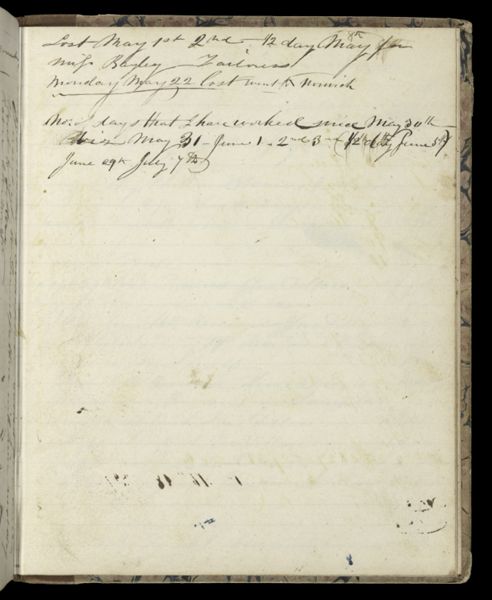 Lost May 1st 2nd 1/2 day May 8th for
Miss Bagley Tailoress
Monday May 22 lost went to Norwich
No. days that I have worked since May 30th
May 31 - June 1 - 2nd 3 - (1/2 day June 5th
June 29th July 7th)